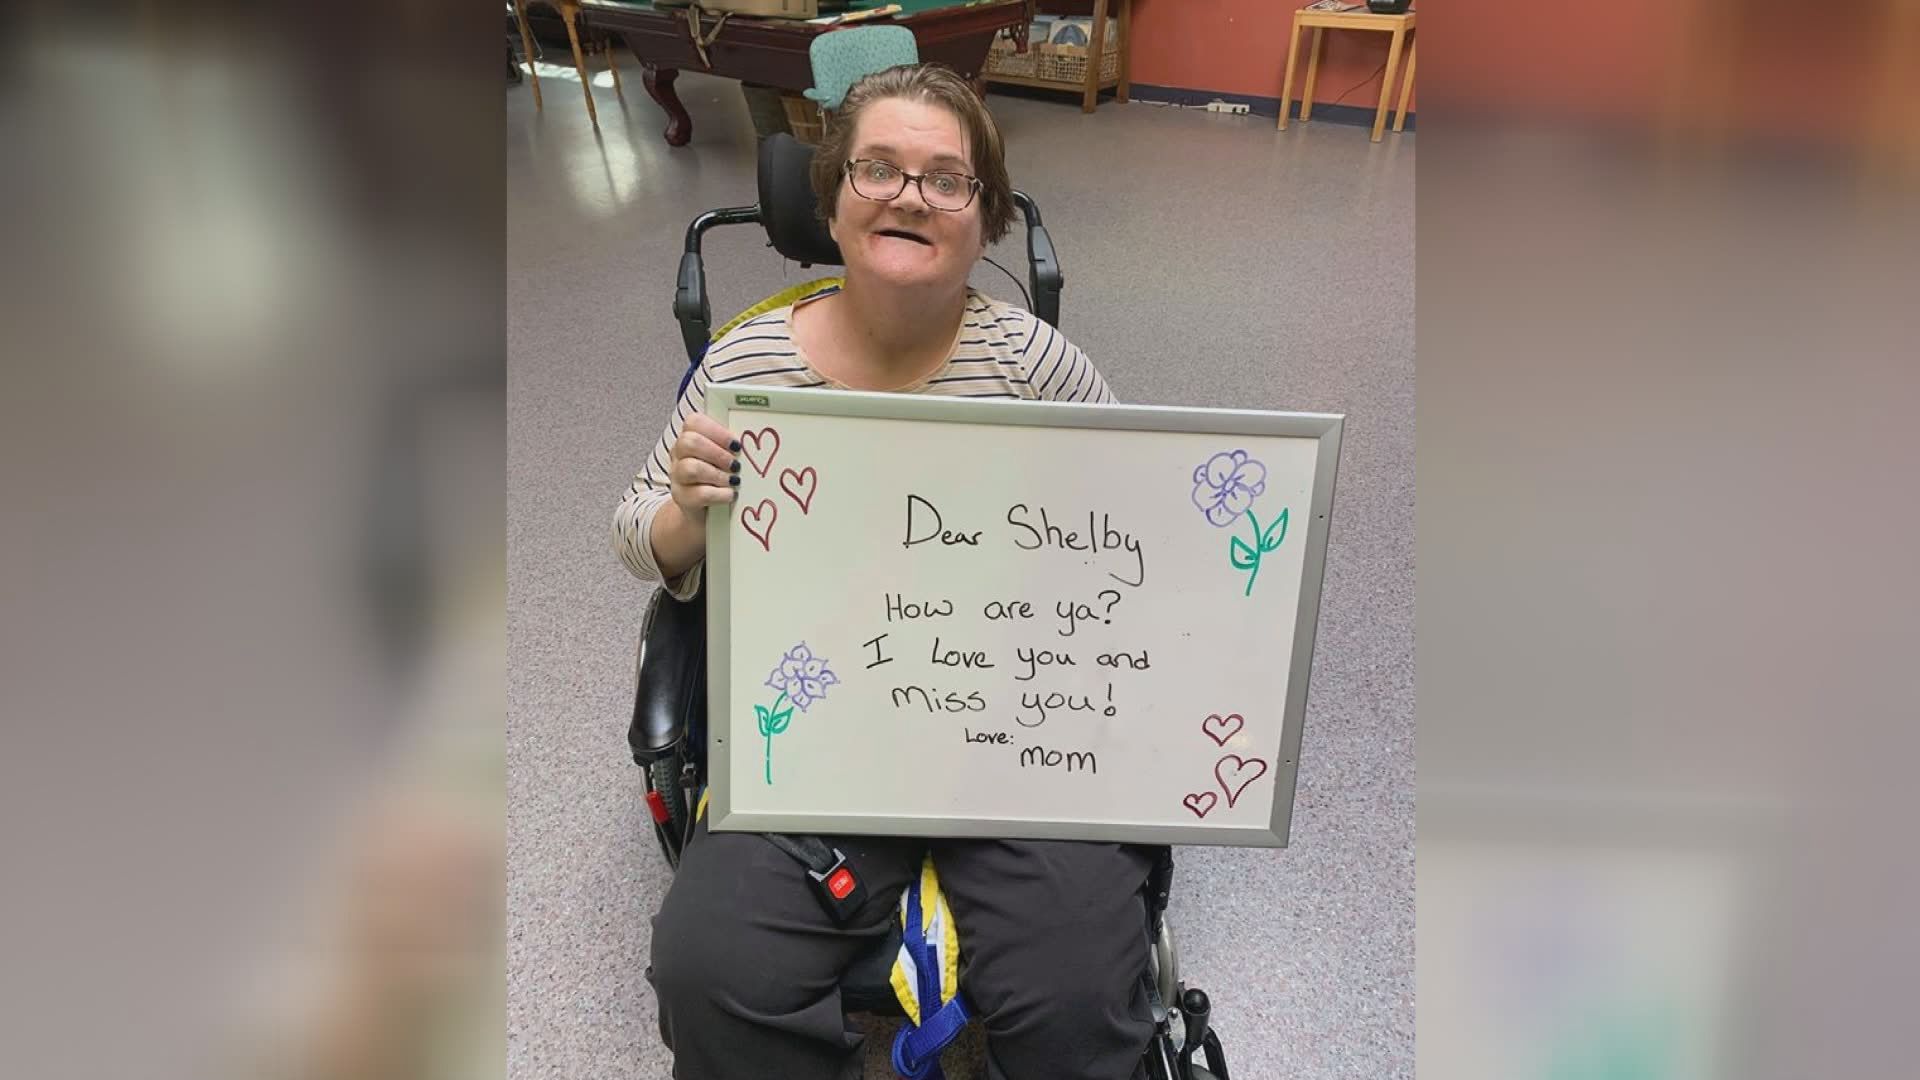 Dear Shelby
How are ya?
I Love you and
miss you!
Love:
mom